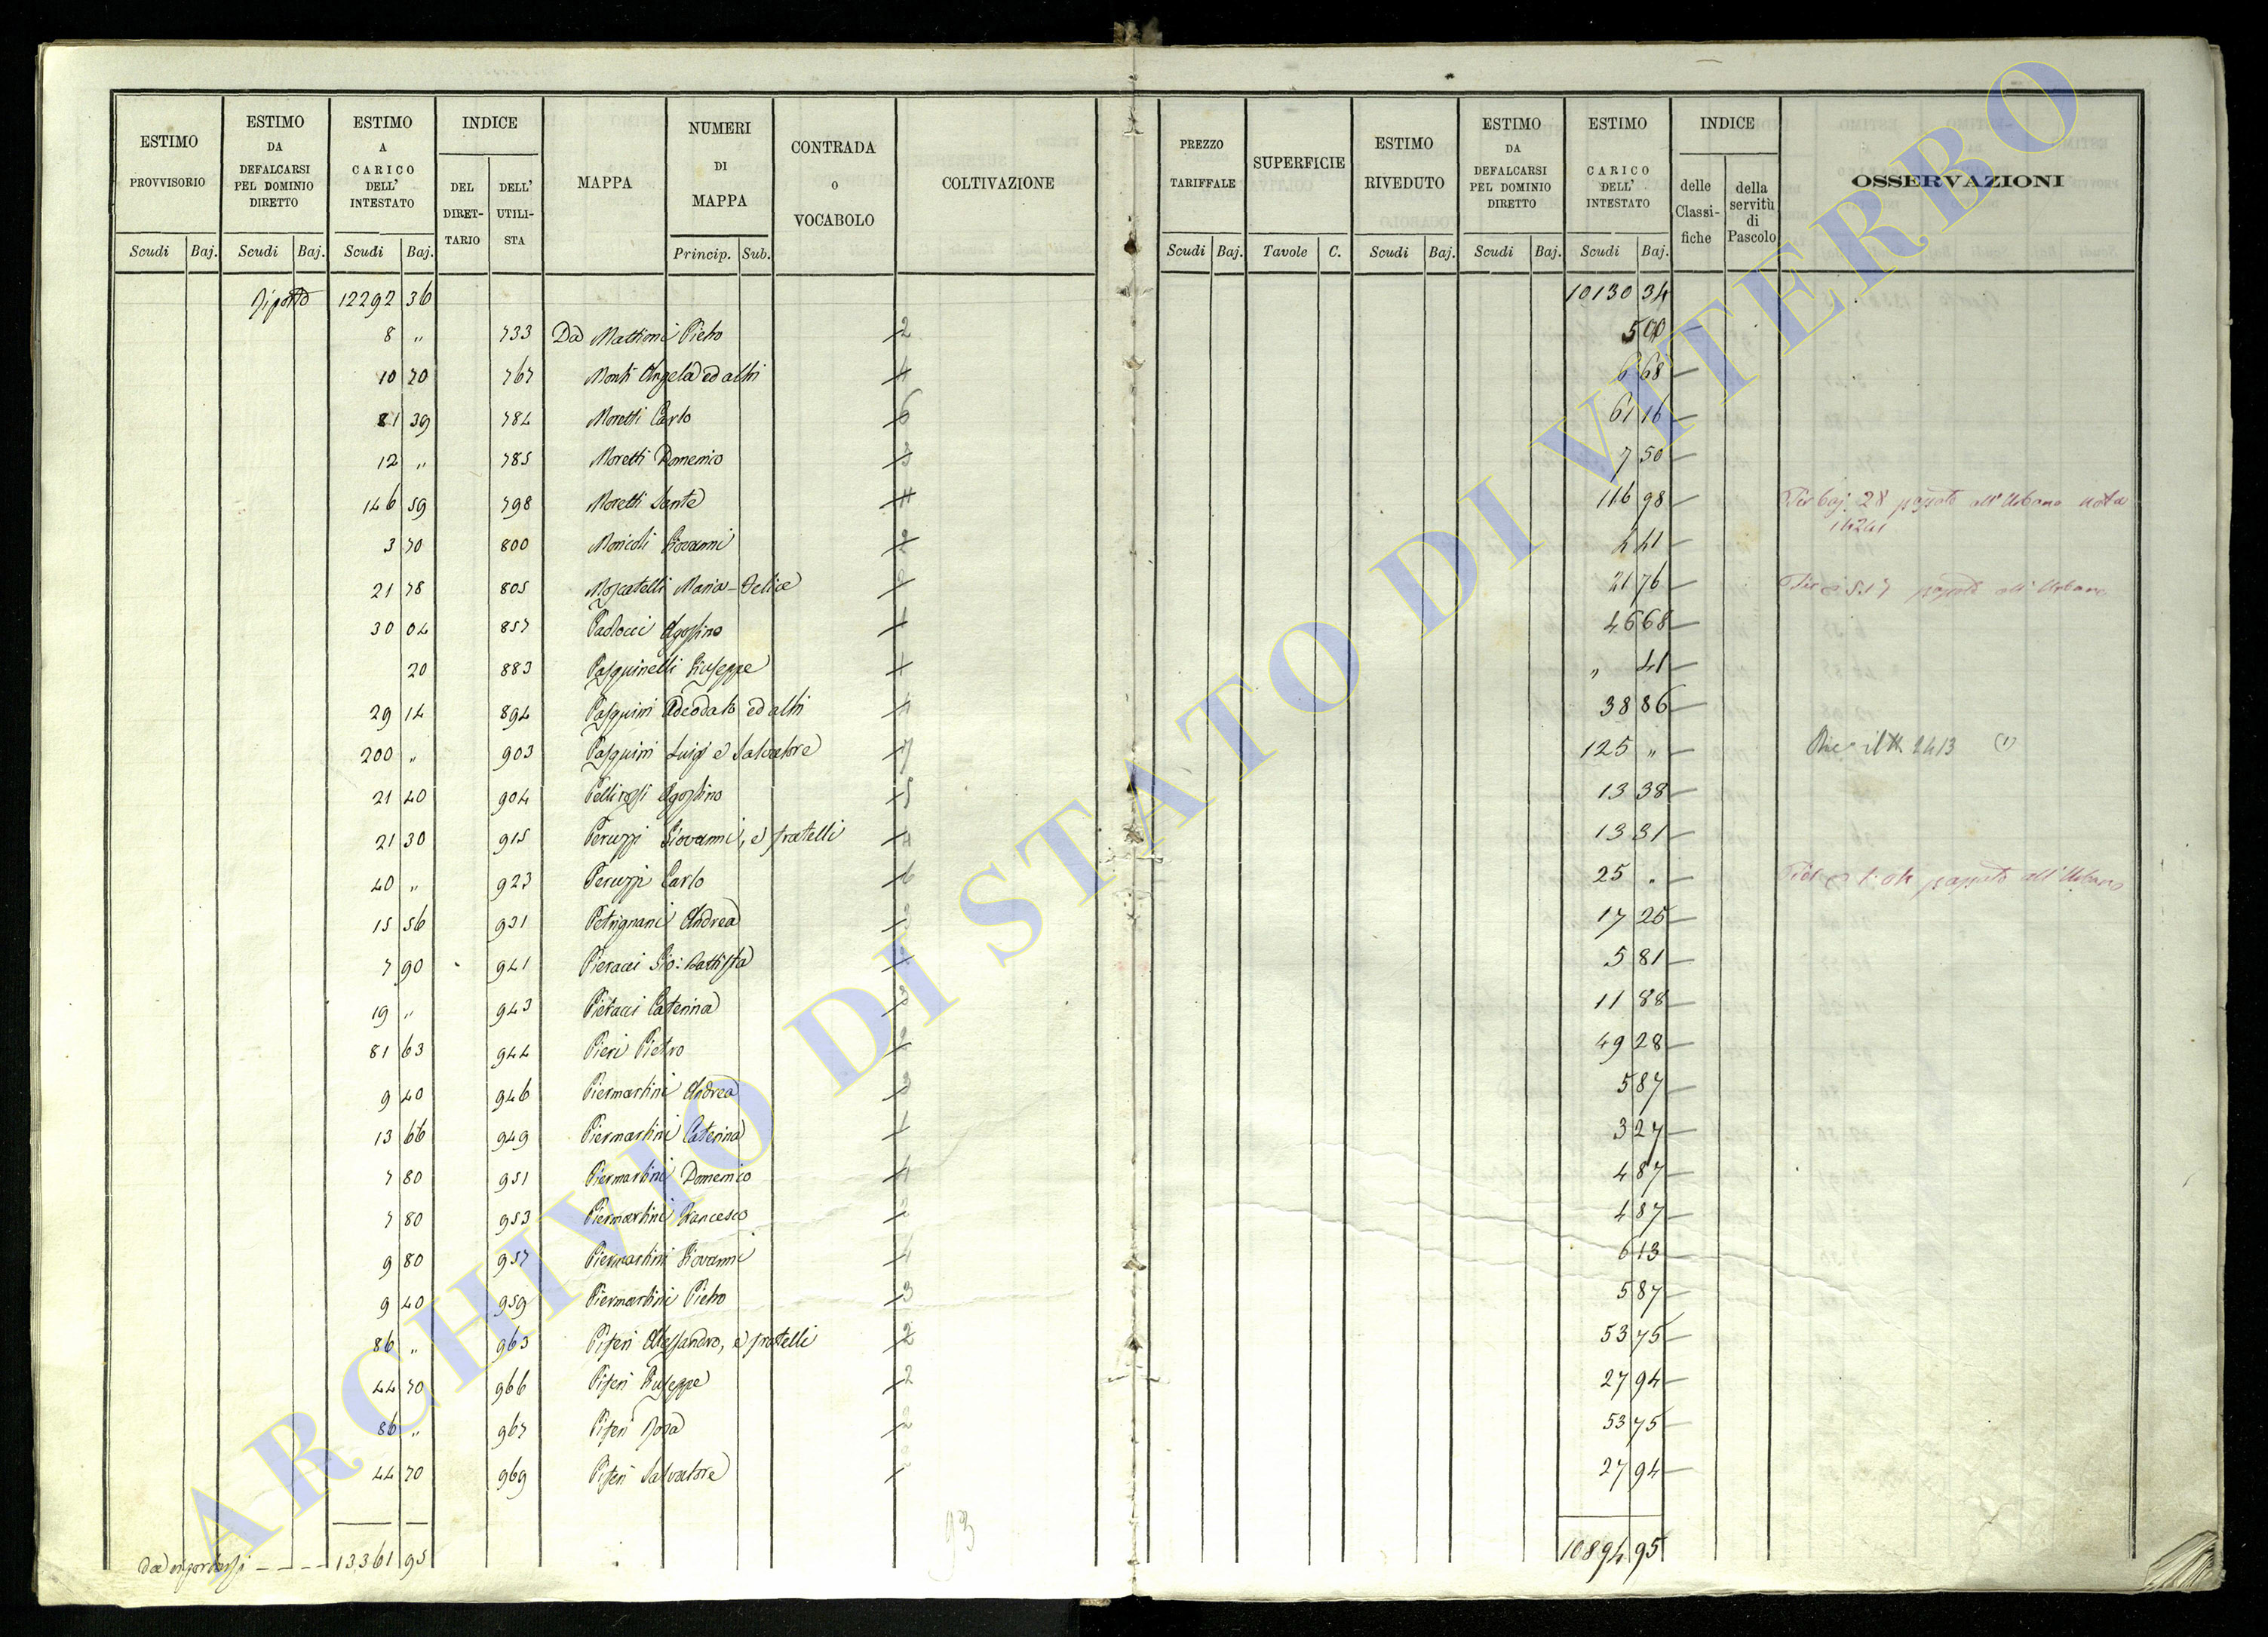 ESTIMO PROVVISORIO
ESTIMO DA DEFALCARSI PEL DOMINIO DIRETTO
ESTIMO A CARICO DELL' INTESTATO
INDICE
DEL DIRET-TARIO
DELL' UTILI-STA
MAPPA
NUMERI DI MAPPA
CONTRADA o VOCABOLO
COLTIVAZIONE
PREZZO TARIFFALE
SUPERFICIE
ESTIMO RIVEDUTO
ESTIMO DA DEFALCARSI PEL DOMINIO DIRETTO
ESTIMO CARICO DELL' INTESTATO
INDICE
delle Classi-fiche
della servitù di Pascolo
OSSERVAZIONI
Scudi Baj. Scudi Baj. Scudi Baj. Princip. Sub. Scudi Baj. Tavole C. Scudi Baj. Scudi Baj. Scudi Baj.
Riporto 12292 36 10130 34
8 " 733 Da Mattioni Pietro 2 5
10 70 767 Monti Angela ed altri 4 6 68 —
81 39 784 Moretti Carlo 6 61 16 —
12 " 785 Moretti Domenico 3 7 50 —
146 59 798 Moretti Sante 4 116 98 — Per baj: 28 passato all'Urbano nota
3 70 800 Moricoli Giovanni 2 4 41 —
21 78 805 Moscatelli Maria-Felice 21 76 — passato all'Urbano
30 04 857 Paolocci Agostino 46 68 —
20 883 Pasquinelli Giuseppe " 41 —
29 14 894 Pasquini Adeodato ed altri 4 38 86 —
200 " 903 Pasquini Luigi e Salvatore 7 125 " — 2413 (1)
21 40 904 Pellirossi Agostino 5 13 38 —
21 30 915 Peruzzi Giovanni, e fratelli 4 13 31 —
40 " 923 Peruzzi Carlo 6 25 " — passato all'Urbano
15 56 931 Petrignani Andrea 3 17 25 —
7 90 941 Pieracci Gio: Battista 5 81 —
19 " 943 Pieracci Caterina 3 11 88 —
81 63 944 Pieri Pietro 2 49 28 —
9 40 946 Piermartini Andrea 3 5 87 —
13 66 949 Piermartini Caterina 3 27 —
7 80 951 Piermartini Domenico 4 87 —
7 80 953 Piermartini Francesco 4 87 —
9 80 957 Piermartini Giovanni 4 6 13 —
9 40 959 Piermartini Pietro 3 5 87 —
86 " 963 Piferi Alessandro, e fratelli 2 53 75 —
44 70 966 Piferi Giuseppe 2 27 94 —
86 " 967 Piferi Rosa 2 53 75 —
44 70 969 Piferi Salvatore 27 94 —
93
Da riportarsi - - - - 13361 95 10894 95
ARCHIVIO DI STATO DI VITERBO